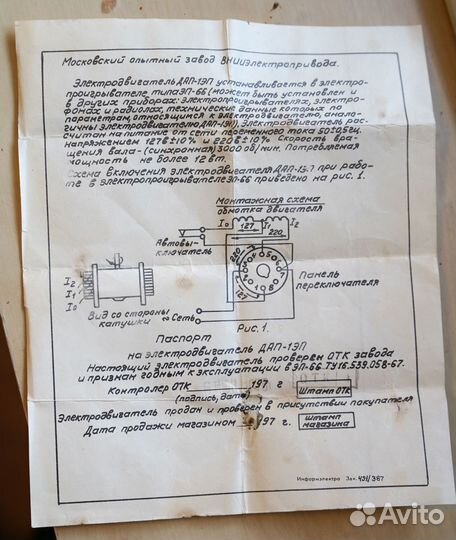 Московский опытный завод ВНИИЭлектропривода.
Электродвигатель ДАП-1ЭП устанавливается в электро-
проигрывателе типа ЭП-66 (может быть установлен и
в других приборах: электропроигрывателях, электро-
фонах и радиолах, технические данные которых по
параметрам, относящимся к электродвигателю, анало-
гичны электродвигателю ДАП-1ЭП). Электродвигатель рас-
считан на питание от сети переменного тока 50±0,5гц.
напряжением 127в±10% и 220в±10%. Скорость вра-
щения вала - (синхронная) 3000 об/мин. Потребляемая
мощность не более 12 вт.
Схема включения электродвигателя ДАП-1ЭП при рабо-
те в электропроигрывателе ЭП-66 приведено на рис. 1.
Монтажная схема
обмотка двигателя
I0 I1 I2
127
220
Автовы-
ключатель
220
127
Панель
переключателя
I2
I1
I0
Вид со стороны
катушки
Сеть
Рис. 1.
Паспорт
на электродвигатель ДАП-1ЭП
Настоящий электродвигатель проверен ОТК завода
и признан годным к эксплуатации в ЭП-66 ТУ16.539.058-67.
Контролер ОТК 197 г Штамп ОТК
(подпись, дата)
Электродвигатель продан и проверен в присутствии покупателя
Дата продажи магазином 197 г. штамп магазина
Информэлектро Зак. 431/367
Avito